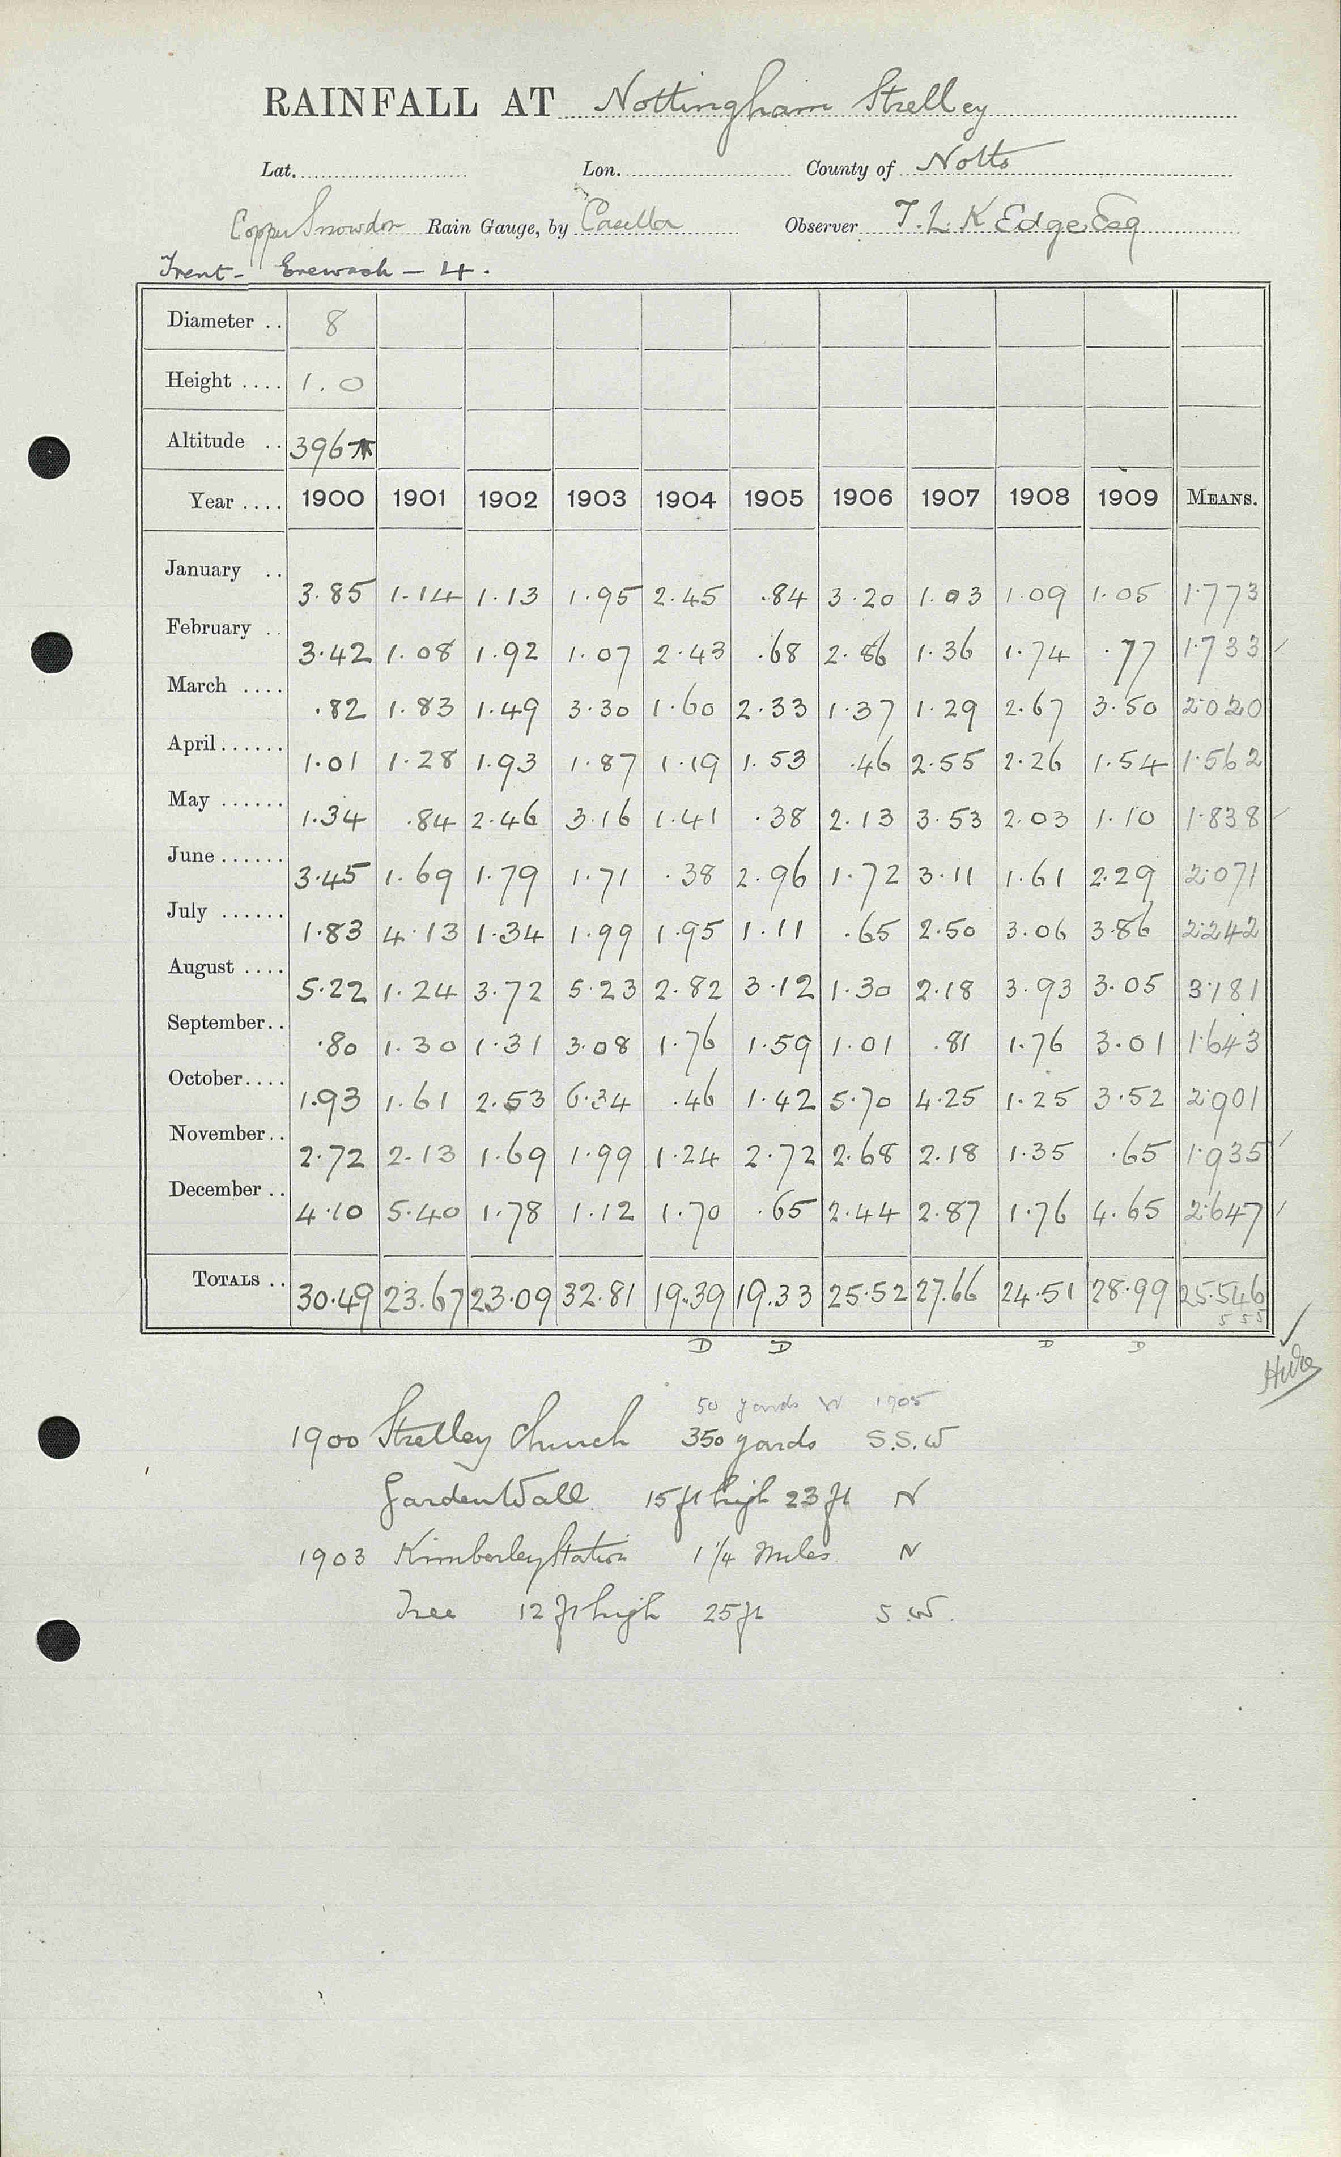 RAINFALL AT Nottingham Strelley
Lat. Lon. County of Notts
Copper Snowdon Rain Gauge, by Casella Observer T. L. K Edge Esq
Trent - Erewash - 4.
Diameter .. 8
Height .... 1.0
Altitude .. 396
Year .... 1900 1901 1902 1903 1904 1905 1906 1907 1908 1909 MEANS.
January .. 3.85 1.14 1.13 1.95 2.45 .84 3.20 1.03 1.09 1.05 1.773
February .. 3.42 1.08 1.92 1.07 2.43 .68 2.86 1.36 1.74 .77 1.733
March .... .82 1.83 1.49 3.30 1.60 2.33 1.37 1.29 2.67 3.50 2.020
April ...... 1.01 1.28 1.93 1.87 1.19 1.53 .46 2.55 2.26 1.54 1.562
May ...... 1.34 .84 2.46 3.16 1.41 .38 2.13 3.53 2.03 1.10 1.838
June ...... 3.45 1.69 1.79 1.71 .38 2.96 1.72 3.11 1.61 2.29 2.071
July ...... 1.83 4.13 1.34 1.99 1.95 1.11 .65 2.50 3.06 3.86 2.242
August .... 5.22 1.24 3.72 5.23 2.82 3.12 1.30 2.18 3.93 3.05 3.181
September.. .80 1.30 1.31 3.08 1.76 1.59 1.01 .81 1.76 3.01 1.643
October.... 1.93 1.61 2.53 6.34 .46 1.42 5.70 4.25 1.25 3.52 2.901
November.. 2.72 2.13 1.69 1.99 1.24 2.72 2.68 2.18 1.35 .65 1.935
December .. 4.10 5.40 1.78 1.12 1.70 .65 2.44 2.87 1.76 4.65 2.647
TOTALS .. 30.49 23.67 23.09 32.81 19.39 19.33 25.52 27.66 24.51 28.99 25.546
5 55
D D D D
50 yards W 1905
1900 Strelley Church 350 yards S.S.W
Garden Wall 15 ft high 23 ft N
1903 Kimberley Station 1 1/4 miles N
Tree 12 ft high 25 ft S W.